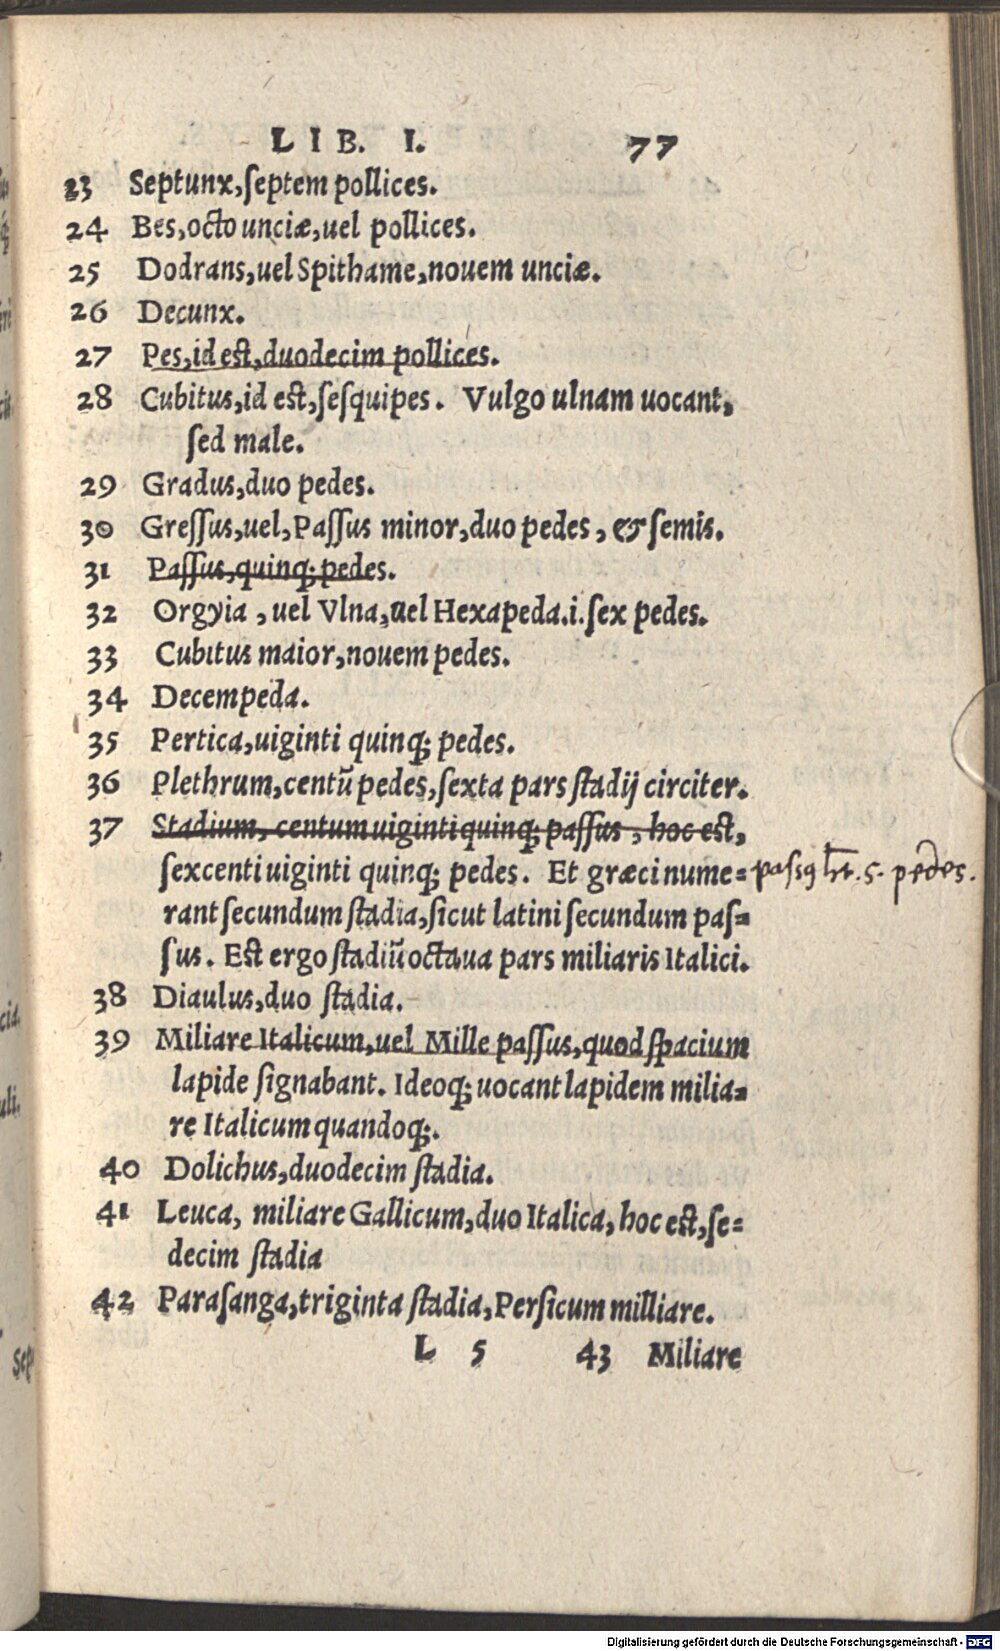 LIB. I. 77
23 Septunx,septem pollices.
24 Bes,octo unciæ,uel pollices.
25 Dodrans,uel Spithame,nouem unciæ.
26 Decunx.
27 Pes,id est,duodecim pollices.
28 Cubitus,id est,sesquipes. Vulgo ulnam uocant,
sed male.
29 Gradus,duo pedes.
30 Gressus,uel,Passus minor,duo pedes, & semis.
31 Passus,quinq; pedes.
32 Orgyia, uel Vlna,uel Hexapeda.i.sex pedes.
33 Cubitus maior,nouem pedes.
34 Decempeda.
35 Pertica,uiginti quinq; pedes.
36 Plethrum,centũ pedes,sexta pars stadij circiter.
37 Stadium, centum uiginti quinq; passus, hoc est,
sexcenti uiginti quinq; pedes. Et græci nume=
passꝯ ht. 5. pedes.
rant secundum stadia,sicut latini secundum pas=
sus. Est ergo stadiũ octaua pars miliaris Italici.
38 Diaulus,duo stadia.
39 Miliare Italicum,uel Mille passus,quod spacium
lapide signabant. Ideoq; uocant lapidem milia=
re Italicum quandoq;.
40 Dolichus,duodecim stadia.
41 Leuca, miliare Gallicum,duo Italica,hoc est,se=
decim stadia
42 Parasanga,triginta stadia,Persicum milliare.
L 5 43 Miliare
Digitalisierung gefördert durch die Deutsche Forschungsgemeinschaft - DFG